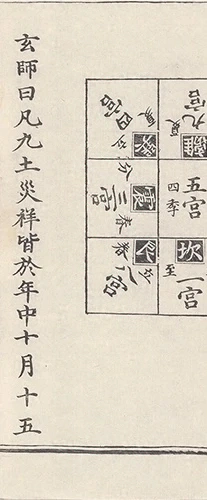 九宮
夏
離
五宮
四季
坎
至
一宮
四宮
立夏
巽
震
春分
三宮
艮
立春
八宮
玄師曰凡九土災祥皆於年中十月十五